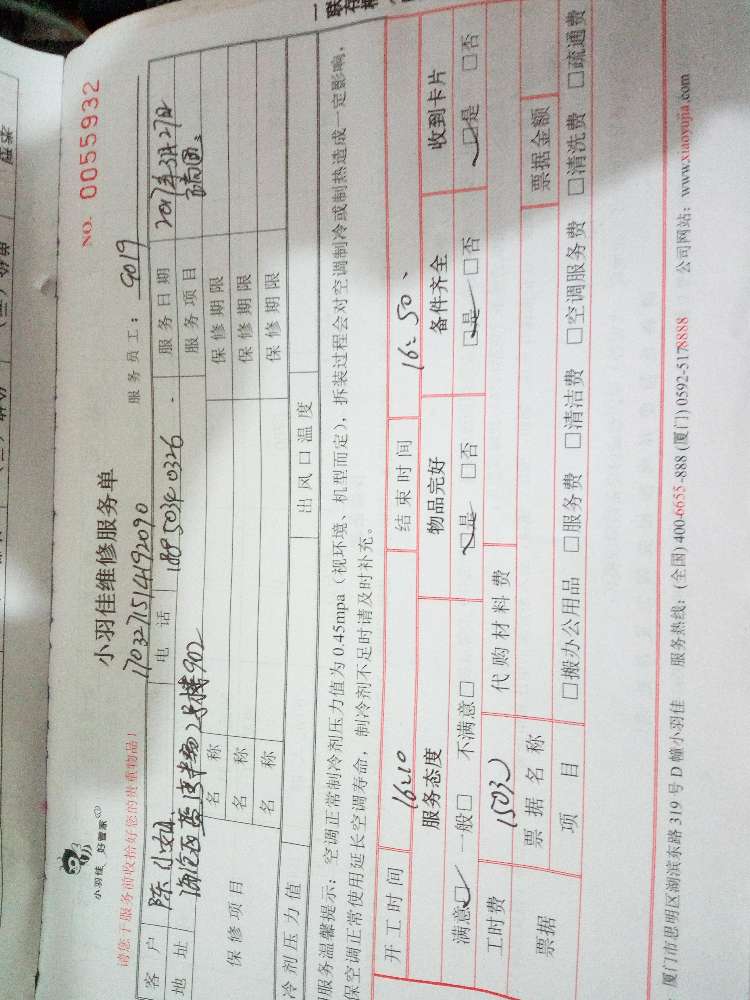 小羽佳 好管家
小羽佳维修服务单
NO. 0055932
请您于服务前收拾好您的贵重物品!
1703271514192090
服务员工: 9019
客户 陈小姐 电话 188 5034 0326 服务日期 2017年3月27日
地址 2号楼902 服务项目
保修项目
名称 保修期限
名称 保修期限
名称 保修期限
冷剂压力值 出风口温度
服务温馨提示:空调正常制冷剂压力值为0.45mpa(视环境、机型而定),拆装过程会对空调制冷或制热造成一定影响,
保空调正常使用延长空调寿命,制冷剂不足时请及时补充。
开工时间 16:10 结束时间 16:50
服务态度 物品完好 备件齐全 收到卡片
满意☑ 一般□ 不满意□ ☑是 □否 ☑是 □否 ☑是 □否
工时费 150元 代购材料费
票据 票据名称 票据金额
项目 □搬办公用品 □服务费 □清洁费 □空调服务费 □清洗费 □疏通费
厦门市思明区湖滨东路319号D幢小羽佳 服务热线:(全国) 400-6655-888 (厦门) 0592-5178888 公司网站:www.xiaoyujia.com